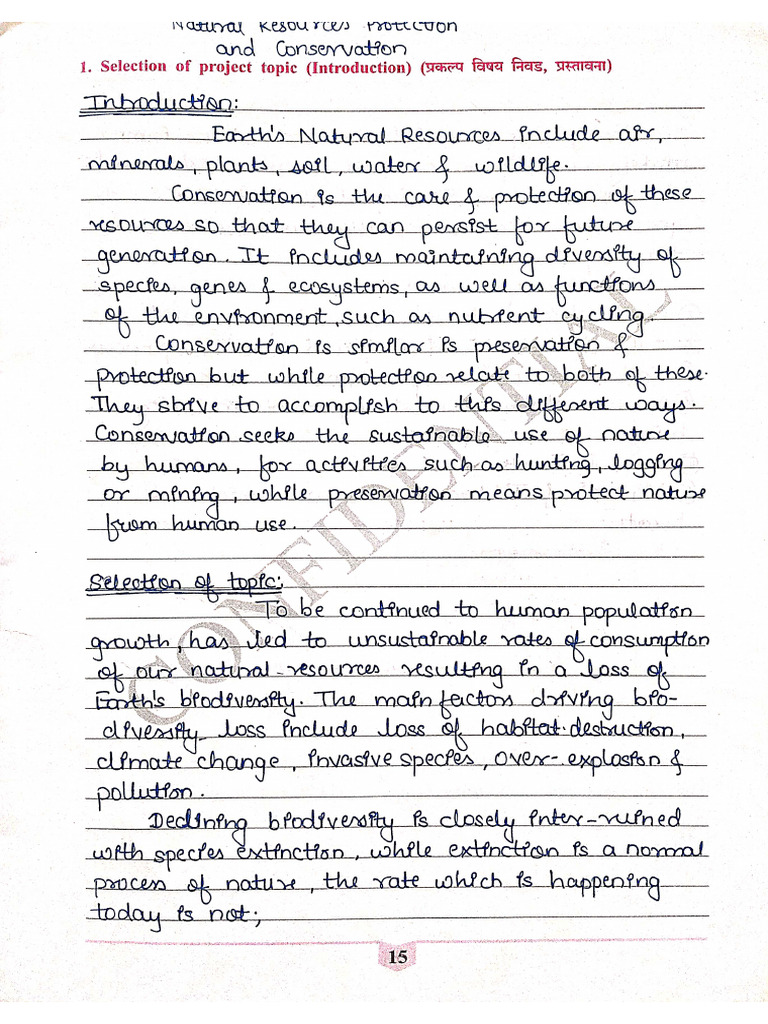 Natural Resources Protection
and Conservation
1. Selection of project topic (Introduction) (प्रकल्प विषय निवड, प्रस्तावना)
Introduction:
Earth's Natural Resources include air,
minerals, plants, soil, water & wildlife.
Conservation is the care & protection of these
resources so that they can persist for future
generation. It includes maintaining diversity of
species, genes & ecosystems, as well as functions
of the environment, such as nutrient cycling.
Conservation is similar is preservation &
protection but while protection relate to both of these.
They strive to accomplish to this different ways.
Conservation seeks the sustainable use of nature
by humans, for activities such as hunting, logging
or mining, while preservation means protect nature
from human use.
Selection of topic:
To be continued to human population
growth, has led to unsustainable rates of consumption
of our natural-resources resulting in a loss of
Earth's biodiversity. The main factors driving bio-
diversity loss include loss of habitat destruction,
climate change, invasive species, over-explosion &
pollution.
Declining biodiversity is closely inter-ruined
with species extinction, while extinction is a normal
process of nature, the rate which is happening
today is not;
CONFIDENTIAL
15